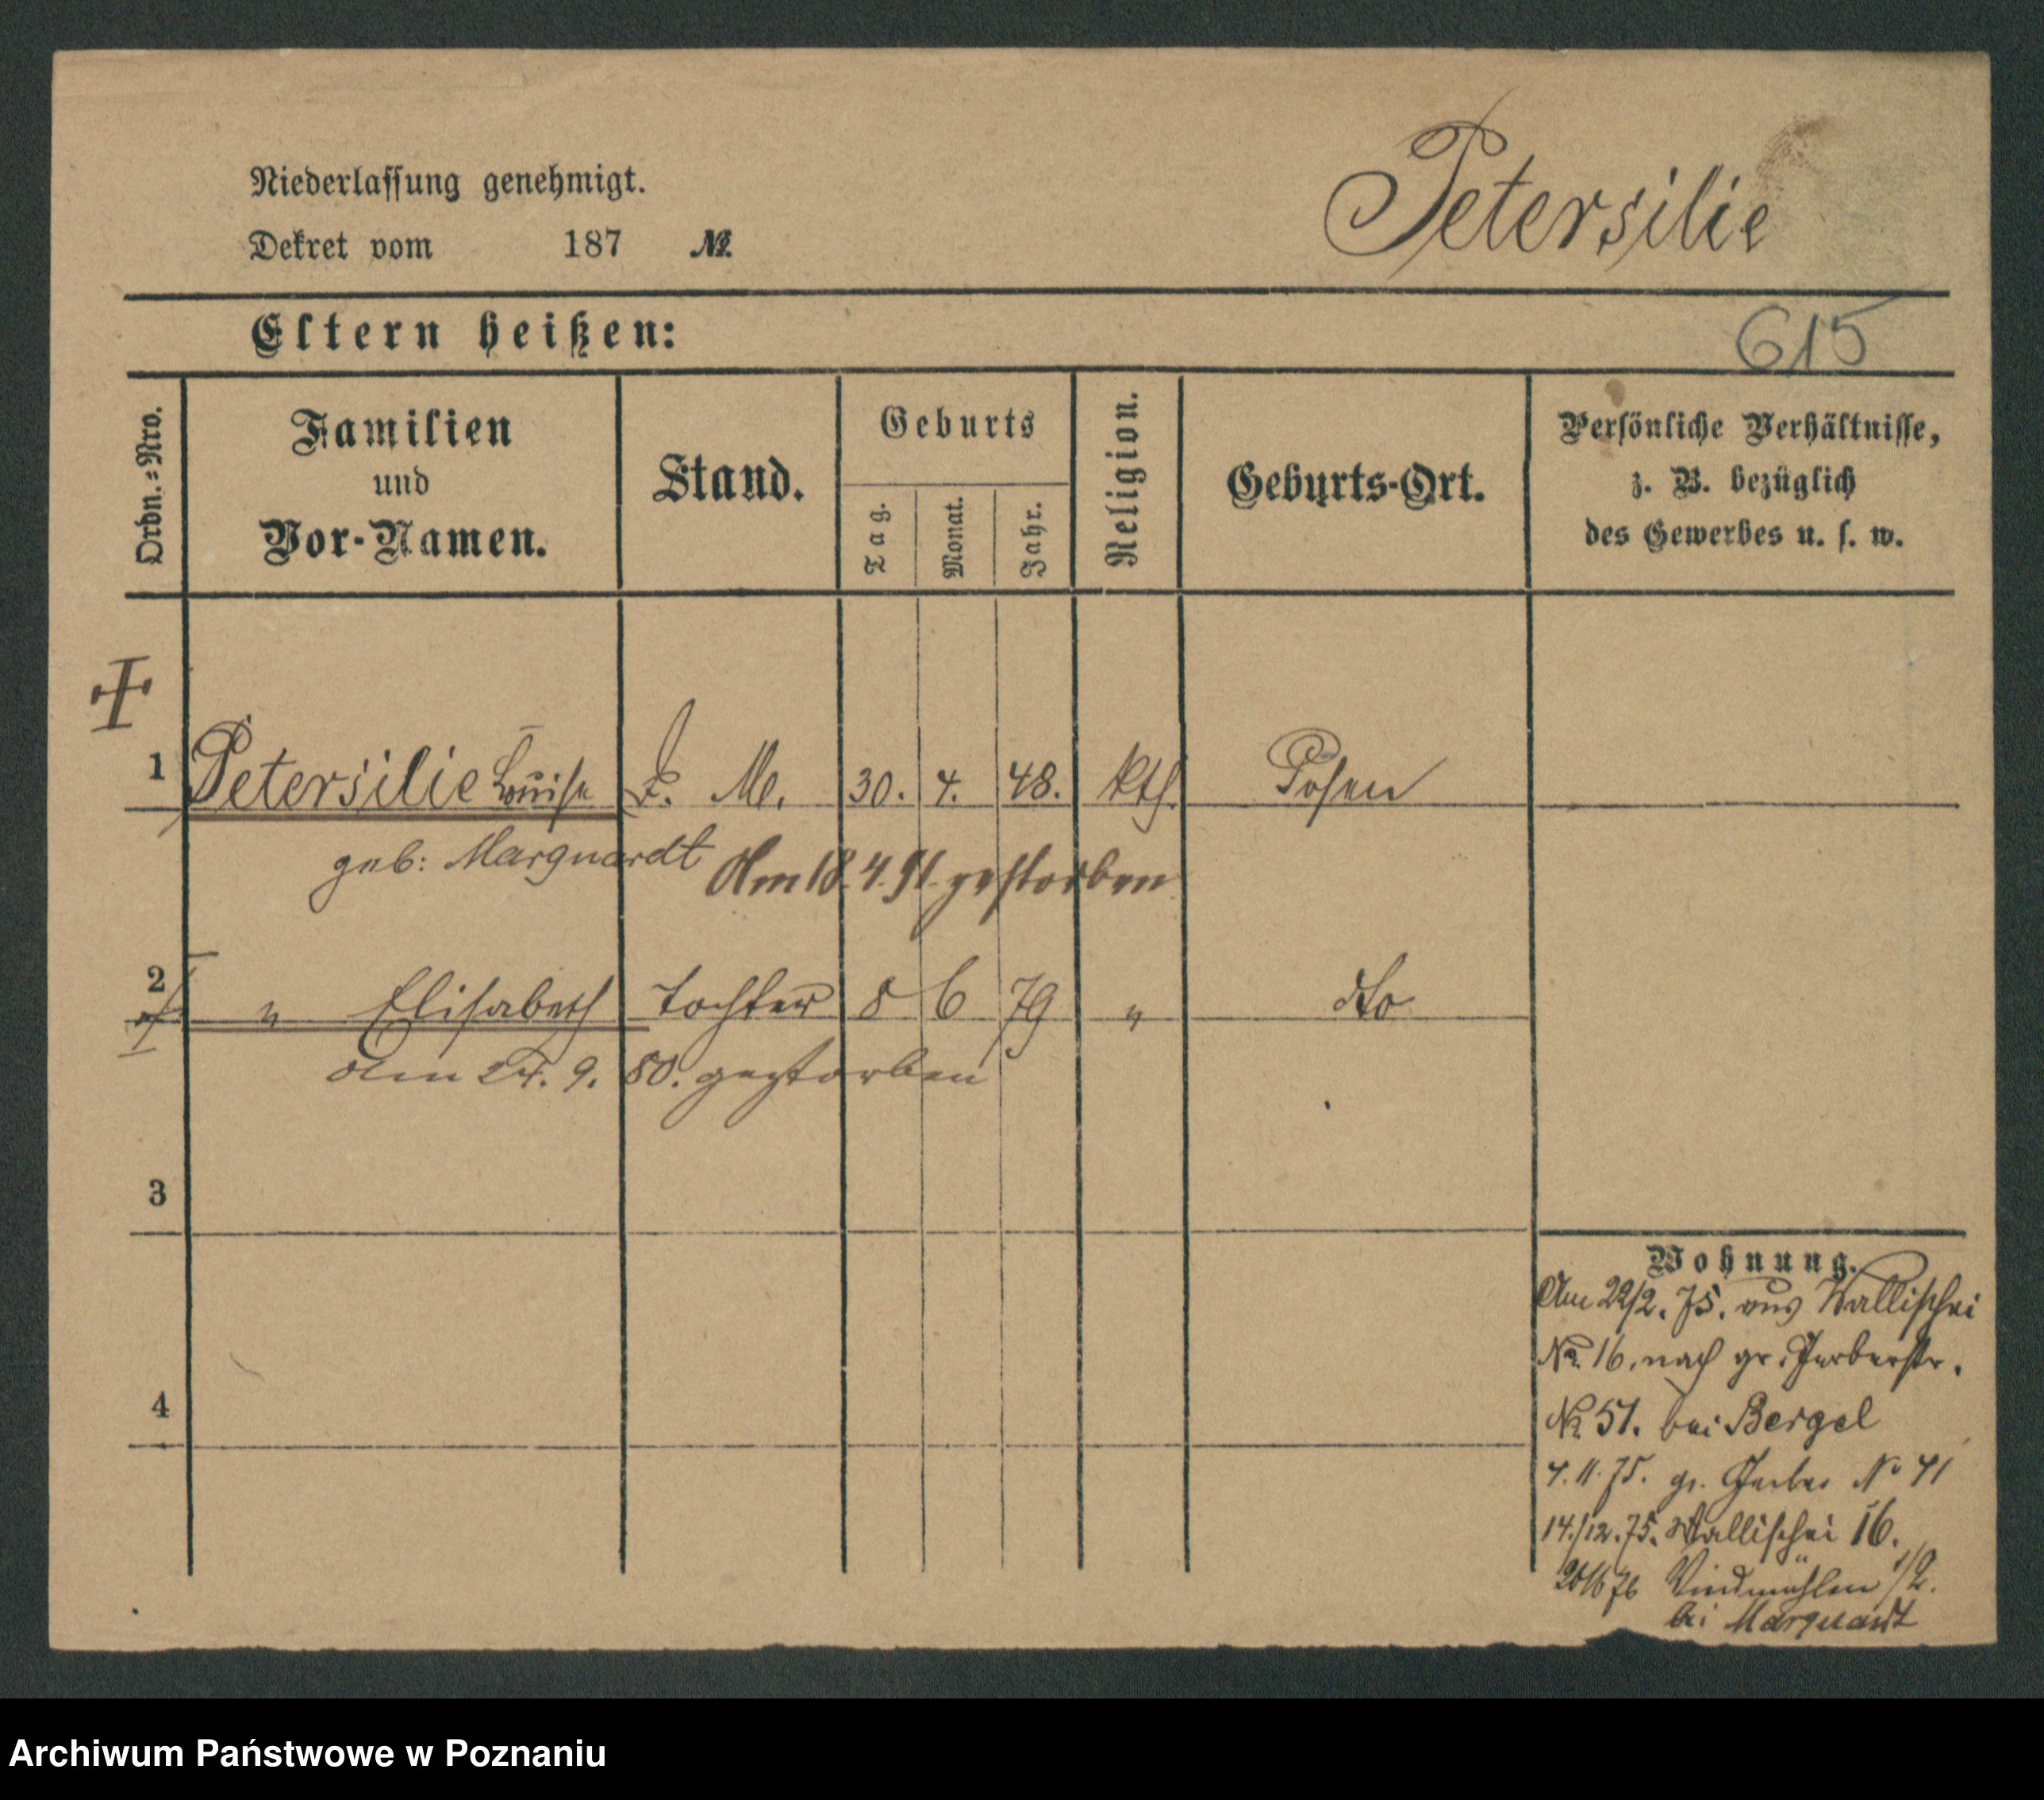 Niederlassung genehmigt.
Petersilie
Dekret vom 187 №.
Eltern heißen:
615
Ordn.=Nro.
Familien
und
Vor-Namen.
Stand.
Geburts
Tag.
Monat.
Jahr.
Religion.
Geburts-Ort.
Persönliche Verhältnisse,
z. B. bezüglich
des Gewerbes u. s. w.
1 Petersilie Louise M. 30. 4. 48. kth. Posen
geb: Marquardt
Am 18. 4. 91. gestorben
2 " Elisabeth Tochter 8 6 79 " dto
Am 24. 9. 80. gestorben
3
4
Wohnung.
Am 22/2. 75. aus Wallischei
No 16, nach gr. Gerberstr.
No 51. bei Bergel
4. 11. 75. gr. Gerber No 41
14./12. 75. Wallischei 16.
20/6 76 Windmühlen 1/2.
bei Marquardt
Archiwum Państwowe w Poznaniu